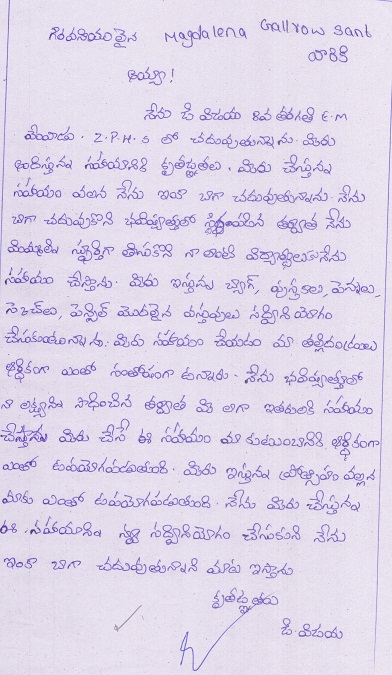 గౌరవనీయులైన Magdalena Gallrow Sant
గారికి
అయ్యా!
నేను డి విజయ 8వ తరగతి E.M
వేంపాడు. Z.P.H.S లో చదువుతున్నాను. మీరు
అందిస్తున్న సహాయానికి కృతజ్ఞతలు. మీరు చేస్తున్న
సహాయం వలన నేను ఇంకా బాగా చదువుతున్నాను. నేను
బాగా చదువుకొని భవిష్యత్తులో స్థిరపడిన తర్వాత నేను
మిమ్మల్ని స్ఫూర్తిగా తీసుకొని నా లాంటి విద్యార్థులకు నేను
సహాయం చేస్తాను. మీరు ఇస్తున్న బ్యాగ్, పుస్తకాలు, పెన్నులు,
పెన్సిల్ మొదలైన వస్తువులు సద్వినియోగం
చేసుకుంటున్నాను. మీరు సహాయం చేయడం మా తల్లిదండ్రులు
ఆర్థికంగా ఎంతో సంతోషంగా ఉన్నారు. నేను భవిష్యత్తులో
నా లక్ష్యాన్ని సాధించిన తర్వాత మీ లాగా ఇతరులకి సహాయం
చేస్తాను మీరు చేసే ఈ సహాయం మా కుటుంబానికి ఆర్థికంగా
ఎంతో ఉపయోగపడుతుంది. మీరు ఇస్తున్న ప్రోత్సాహం వల్లన
మాకు ఎంతో ఉపయోగపడుతుంది. నేను మీరు చేస్తున్న
ఈ సహాయాన్ని సద్వినియోగం చేసుకుని నేను
ఇంకా బాగా చదువుతున్నానని మాట ఇస్తాను
కృతజ్ఞతలు
డి. విజయ